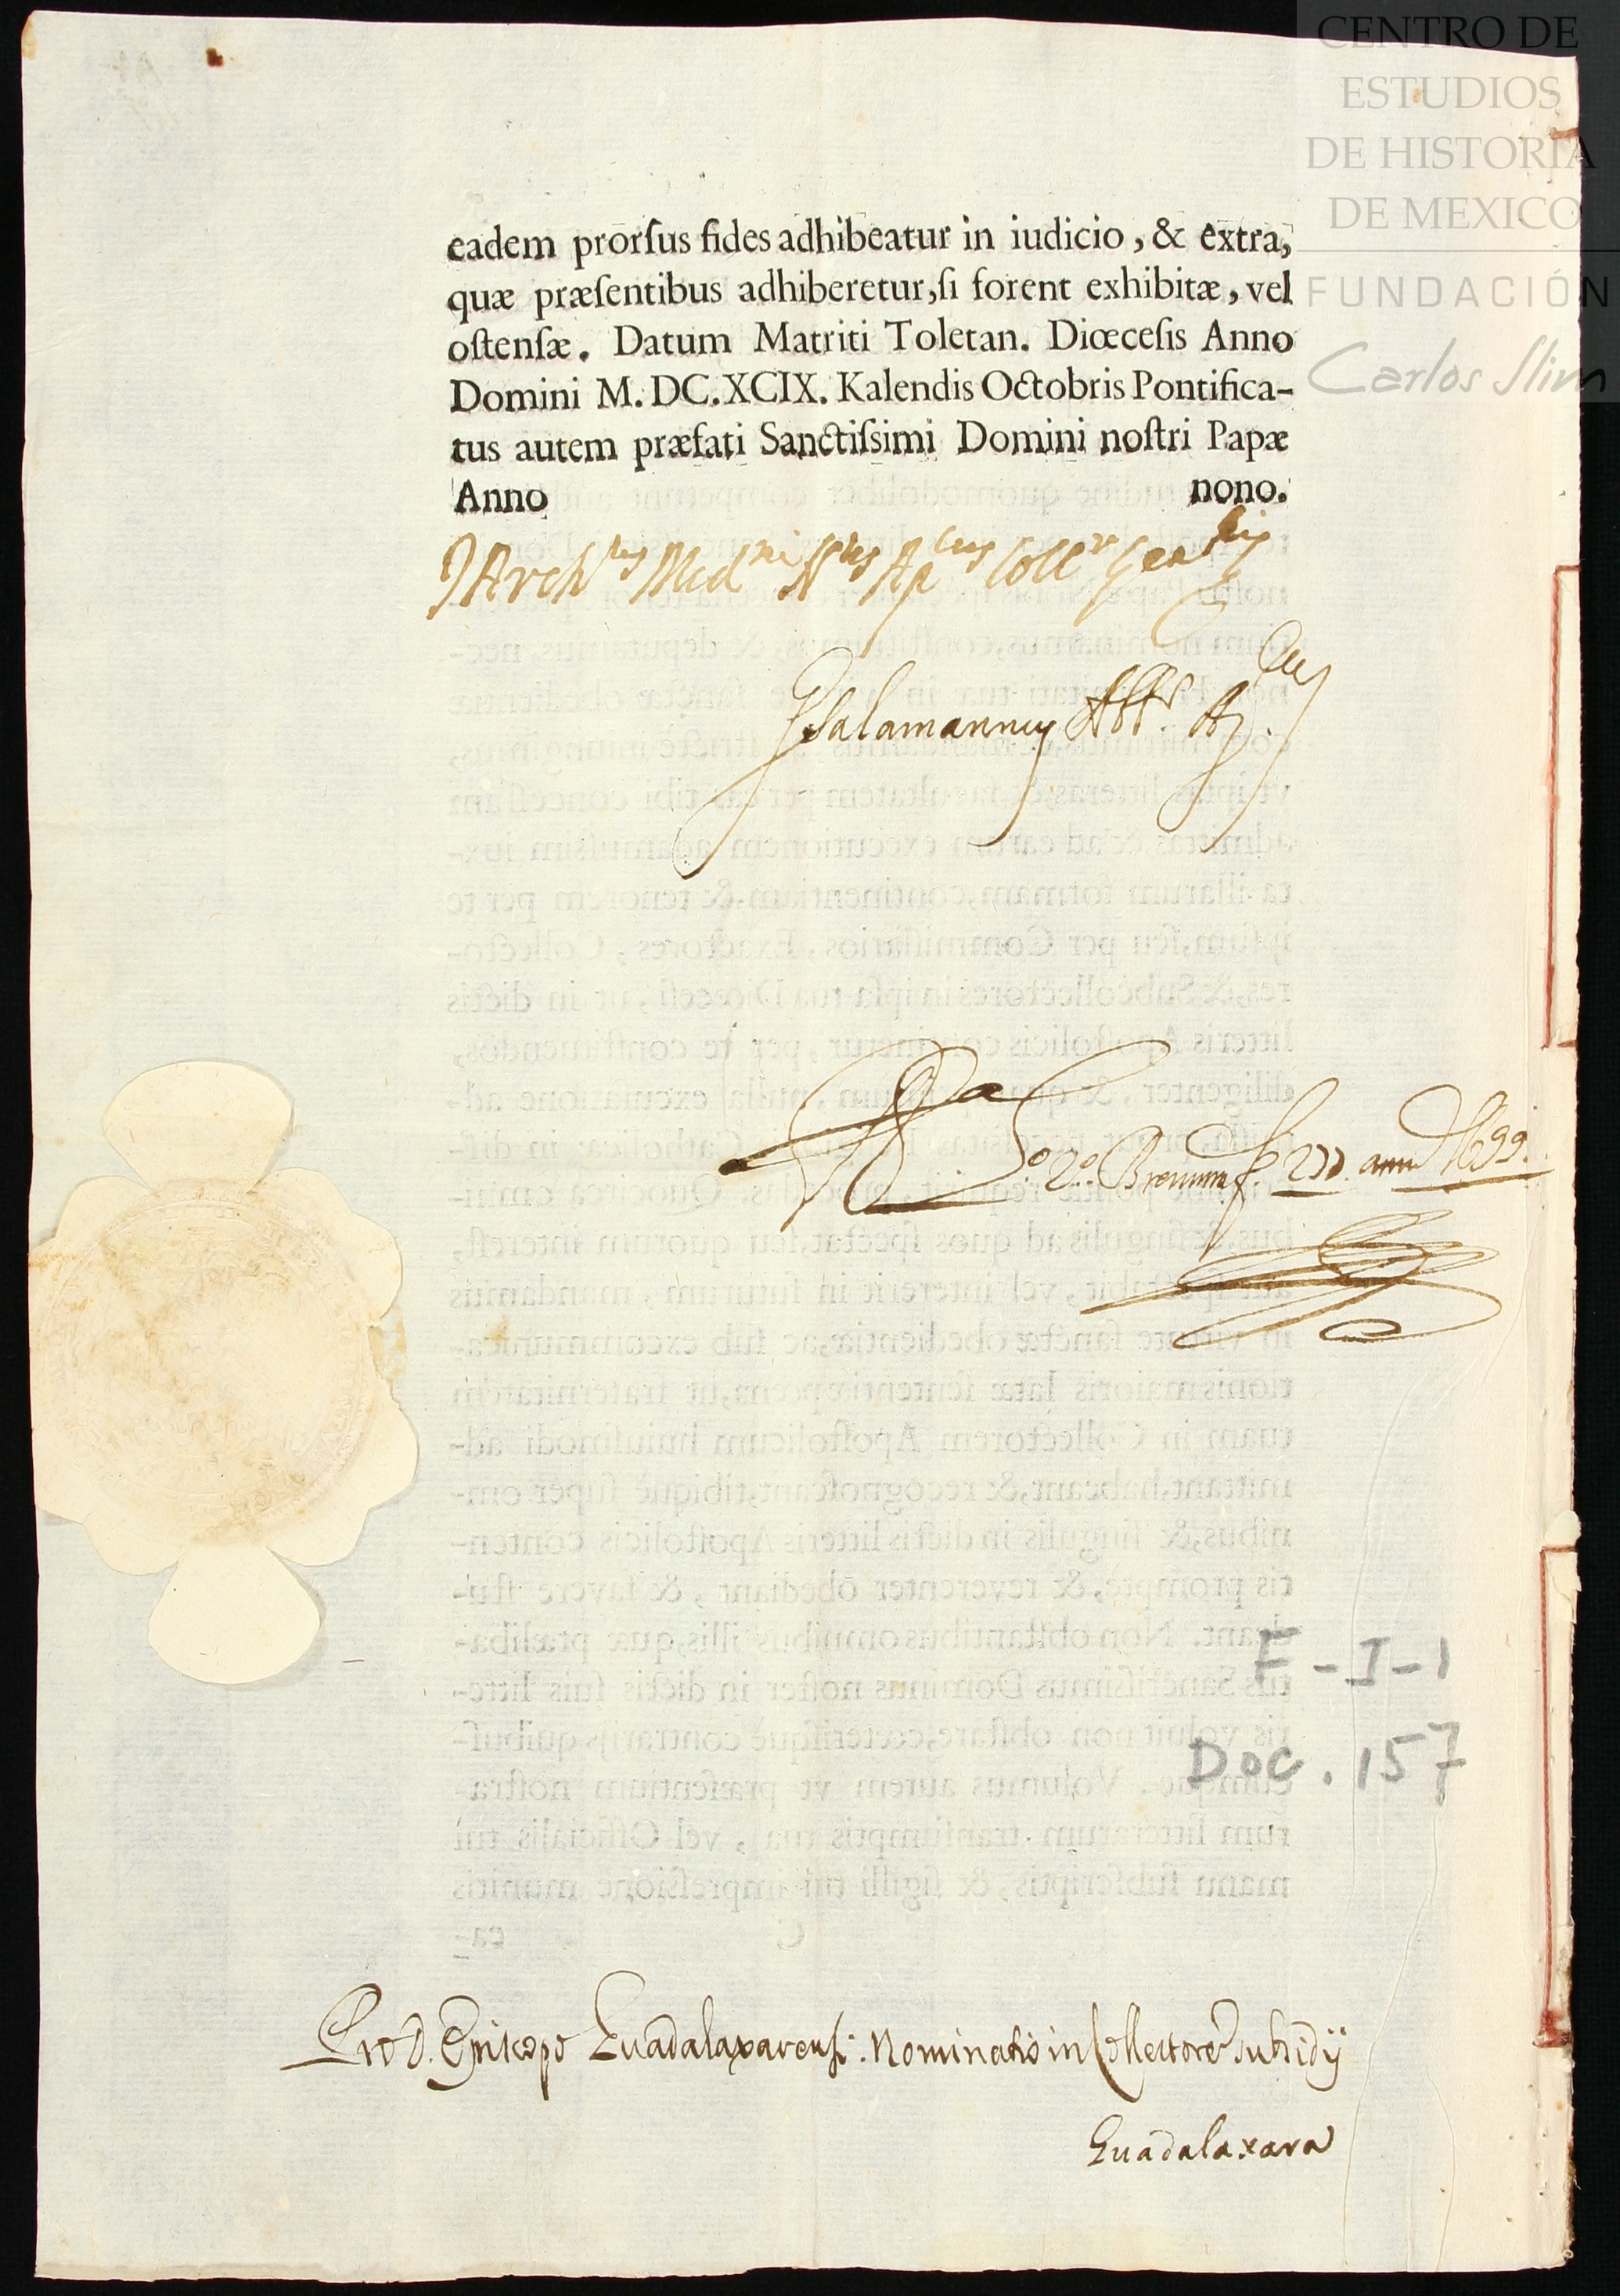 CENTRO DE
ESTUDIOS
DE HISTORIA
DE MEXICO
FUNDACIÓN
Carlos Slim
eadem prorſus fides adhibeatur in iudicio, & extra,
quæ præſentibus adhiberetur, ſi forent exhibitæ, vel
oſtenſæ. Datum Matriti Toletan. Diœceſis Anno
Domini M. DC. XCIX. Kalendis Octobris Pontifica-
tus autem præfati Sanctiſsimi Domini noſtri Papæ
Anno nono.
J Archpus Medni Nus Apcus Collr Genlis
Salamannus Abbr. Ap.cus
So. 2o. Brevium f. 277. anni 1699.
F-I-1
Doc. 157
Pro D. Episcopo Guadalaxarensi. Nominatio in Collectorē Subsidij
Guadalaxara